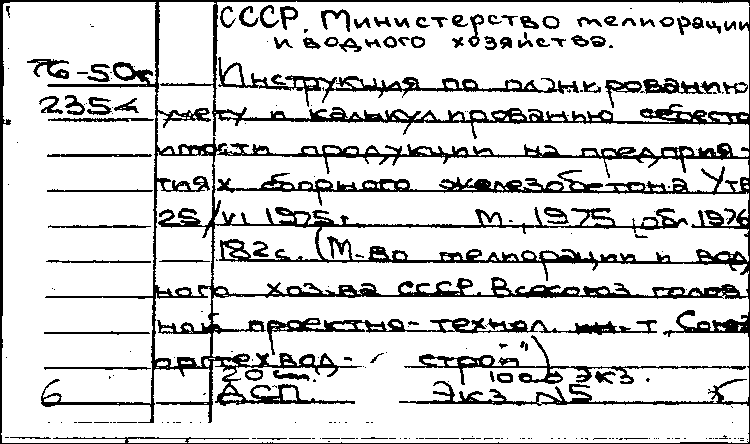 СССР. Министерство мелиорации
и водного хозяйства.
76-50к Инструкция по планированию
2354 учету и калькулированию себесто
имости продукции на предприя-
тиях сборного железобетона. Утв
25/VI 1975г. М., 1975 [обл. 1976
182с. (М-во мелиорации и вод
ного хоз-ва СССР. Всесоюз. голов
ной проектно-технол. ин-т "Союз
оргтехвод-строй")
20 см. 1000 экз.
6 ДСП. Экз N5